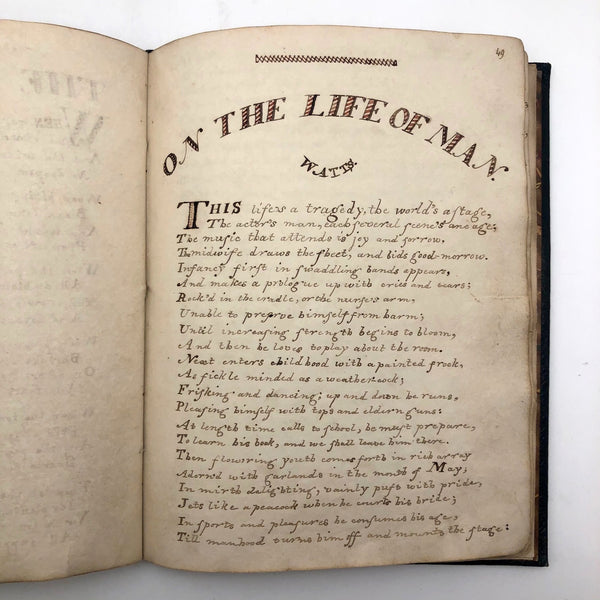 49
ON THE LIFE OF MAN.
WATTS.
THIS life's a tragedy, the world's a stage,
The actor's man, each several scene's an age:
The music that attends is joy and sorrow,
The midwife draws the sheet, and bids good-morrow.
Infancy first in swaddling bands appears,
And makes a prologue up with cries and tears;
Rock'd in the cradle, or the nurse's arm,
Unable to preserve himself from harm;
Until increasing strength begins to bloom,
And then he loves to play about the room.
Next enters childhood with a painted frock,
As fickle minded as a weather-cock;
Frisking and dancing; up and down he runs,
Pleasing himself with tops and eldern guns:
At length time calls to school, he must prepare,
To learn his book, and we shall leave him there.
Then flowering youth comes forth in rich array
Adorn'd with garlands in the month of May;
In mirth delighting, vainly puft with pride,
Jets like a peacock when he courts his bride;
In sports and pleasures he consumes his age,
Till manhood turns him off and mounts the stage: